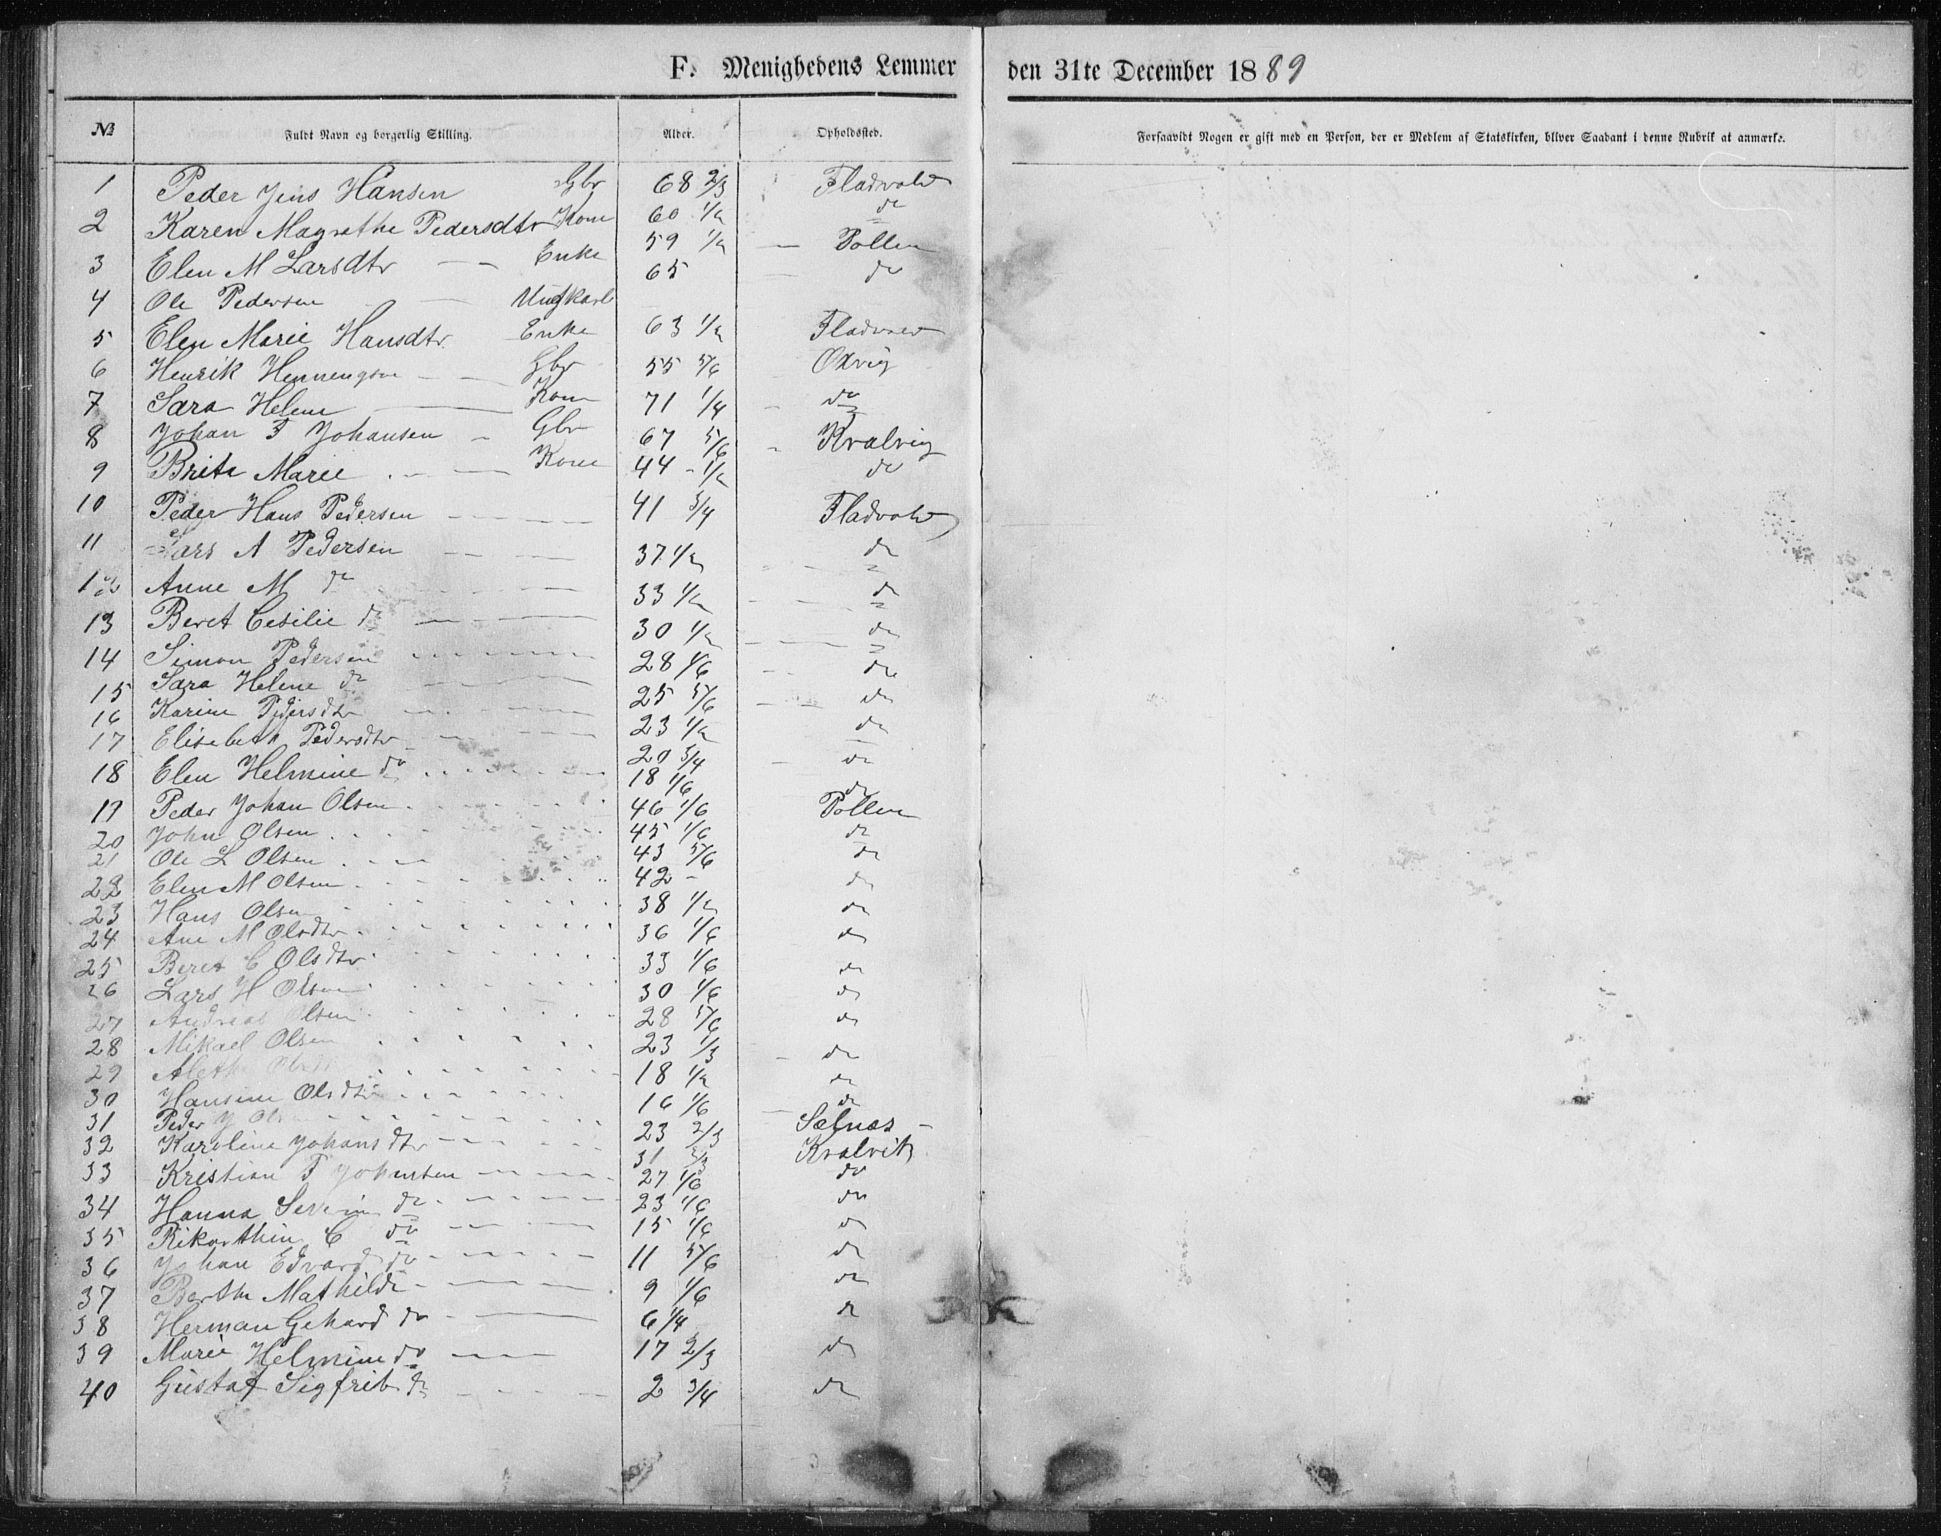 F. Menighedens Lemmer den 31te December 1889
№ Fuldt Navn og borgerlig Stilling. Alder. Opholdssted. Forsaavidt Nogen er gift med en Person, der er Medlem af Statskirken, bliver Saadant i denne Rubrik at anmærke.
1 Peder Jens Hansen Gbr 68 2/3 Fladvold
2 Karen Magrethe Pedersdtr Kone 60 1/2 do
3 Elen M Larsdtr Enke 59 1/2 Pollen
4 Ole Pedersen Ungkarl 65 do
5 Elen Marie Hansdtr Enke 63 1/2
6 Henrik Henningsen Gbr 55 5/6 Oxvig
7 Sara Helene Kone 71 1/4 do
8 Johan F Johansen Gbr 67 5/6 Kvalvig
9 Brita Marie Kone 44 1/2 do
10 Peder Hans Pedersen 41 3/4 Fladvold
11 Lars A Pedersen 37 1/2 do
12 Anne M do 33 1/2 do
13 Beret Cesilie do 30 1/2 do
14 Simon Pedersen 28 1/6 do
15 Sara Helene do 25 5/6 do
16 Karine Pedersdtr 23 1/2 do
17 Elisabeth Pedersdtr 20 3/4 do
18 Elen Helmine do 18 1/6 do
19 Peder Johan Olsen 46 1/6 Pollen
20 John Olsen 45 1/6 do
21 Ole L Olsen 43 5/6 do
22 Elen M Olsen 42 - do
23 Hans Olsen 38 1/2 do
24 Ane M Olsdtr 36 1/6 do
25 Beret C Olsdtr 33 1/6 do
26 Lars H Olsen 30 1/6 do
27 Andreas Olsen 28 5/6 do
28 Mikael Olsen 23 1/3 do
29 18 1/2 do
30 Hansine Olsdtr 16 1/6 do
31 Peder J 23 2/3 Selnæs
32 Karoline Johansdtr 31 2/3 Kvalvik
33 Kristian F Johansen 27 1/6 do
34 Hanna Severin do 23 1/6 do
35 C do 15 1/6 do
36 Johan Edvard do 11 5/6 do
37 Berthe Mathilde 9 1/6 do
38 Herman Gehard do 6 1/4 do
39 Marie Helmine do 17 2/3 do
40 Gustaf Sigfrid do 2 3/4 do